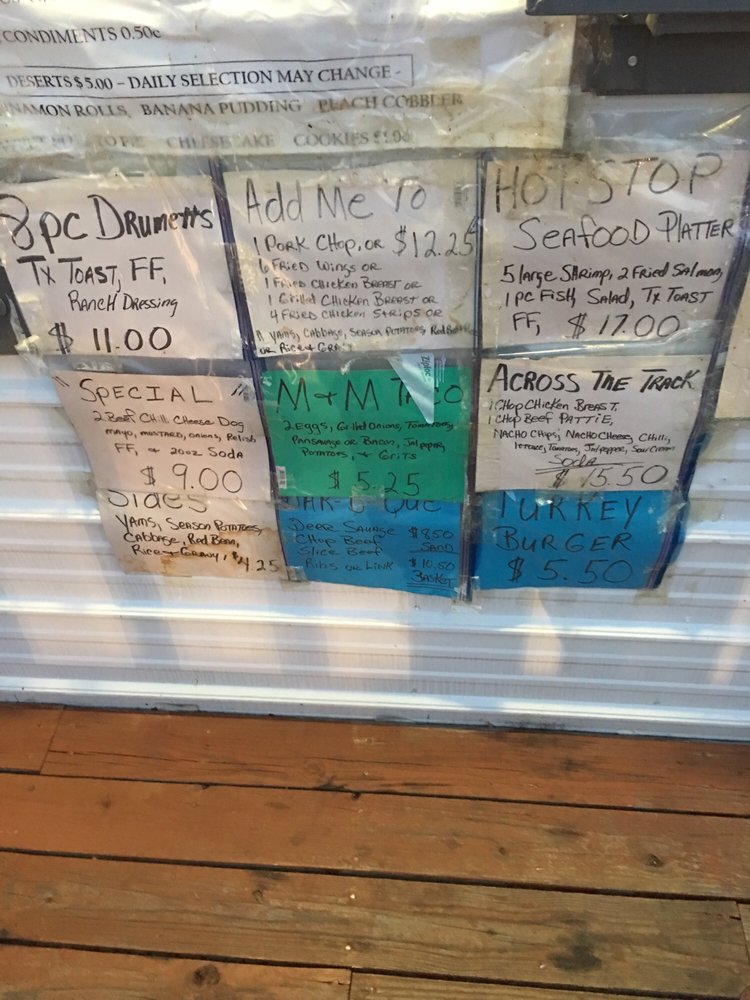 CONDIMENTS 0.50¢
DESERTS $5.00 – DAILY SELECTION MAY CHANGE -
NAMON ROLLS, BANANA PUDDING PEACH COBBLER
CHEESECAKE COOKIES
8pc Drumetts
TX TOAST, FF,
RANCH DRESSING
$ 11.00
Add Me To
1 PORK CHOP, OR $12.25
6 FRIED WINGS OR
1 FRIED CHICKEN BREAST OR
1 Grilled CHICKEN BREAST OR
4 FRIED CHICKEN STRIPS OR
YAMS, CABBAGE, SEASON POTATOES, Red
OR RICE & GRA
HOT STOP
SEAFOOD PLATTER
5 large SHRIMP, 2 FRIED SALMON,
1 PC FISH, SALAD, TX TOAST
FF, $ 17.00
SPECIAL
2 BEEF CHILI CHEESE DOG
MAYO, MUSTARD, ONIONS, RELISH
FF, & 20oz SODA
$ 9.00
M & M TACO
2 EGGS, Grilled ONIONS, TOMATOES,
PANSAUAGE OR BACON,
POTATOES, & GRITS
$ 5.25
Ziploc
ACROSS THE TRACK
1 CHOP CHICKEN BREAST,
1 CHOP BEEF PATTIE,
NACHO CHIPS, NACHO CHEESE, CHILI,
TOMATOES, SOUR CREAM
SODA
$ 15.50
Sides
YAMS, SEASON POTATOES,
CABBAGE, Red BEAN,
RICE & GRAVY, $4.25
BAR-B-QUE
DEER SAUAGE $8.50
CHOP BEEF SAND
SLICE BEEF
RIBS OR LINK $10.50
BASKET
TURKEY
BURGER
$ 5.50